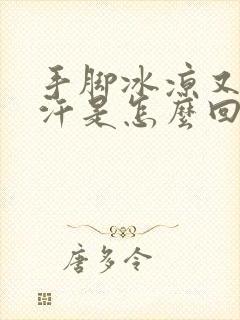 手脚冰凉又
汗是怎麼回
唐多令